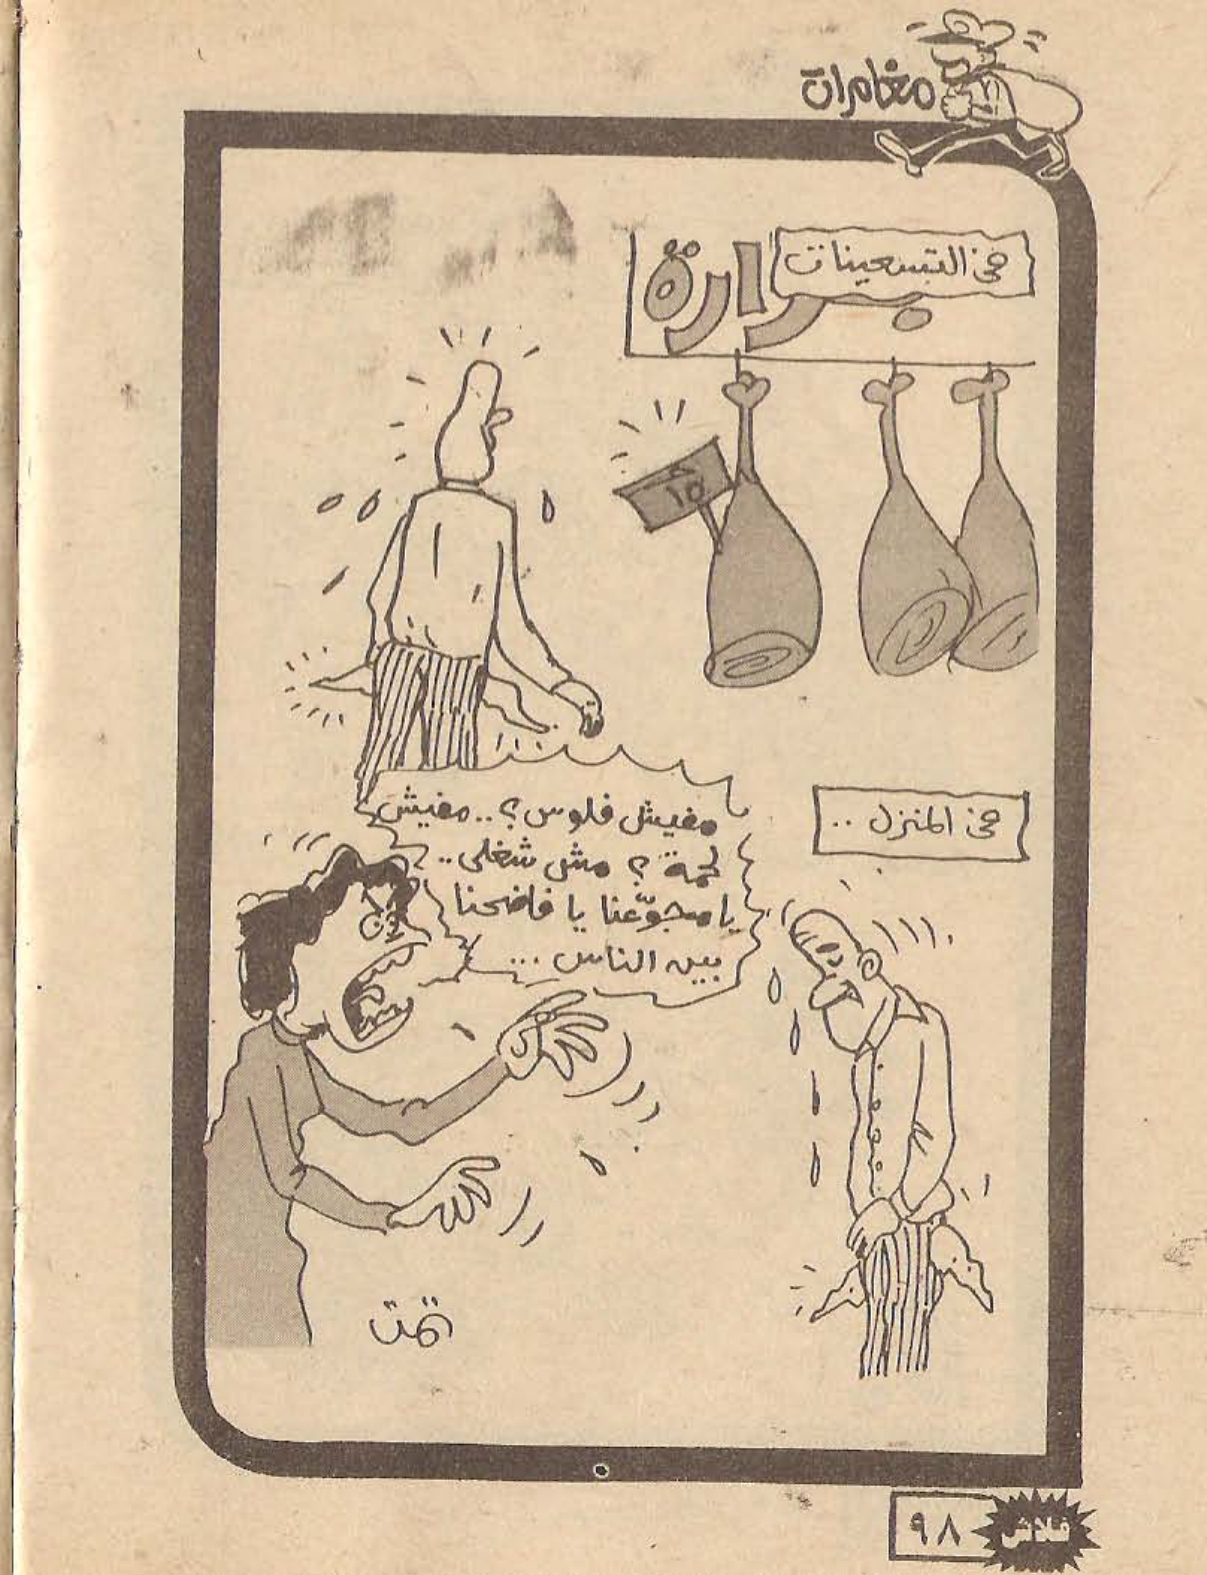 مغامرات
في التسعينات
جزارة
ج
١٥
في المنزل ..
مفيش فلوس ؟ .. مفيش
لحمة ؟ مش شغلى ..
يا مجوّعنا يا فاضحنا
بين الناس ...
تمت
فلاش
٩٨